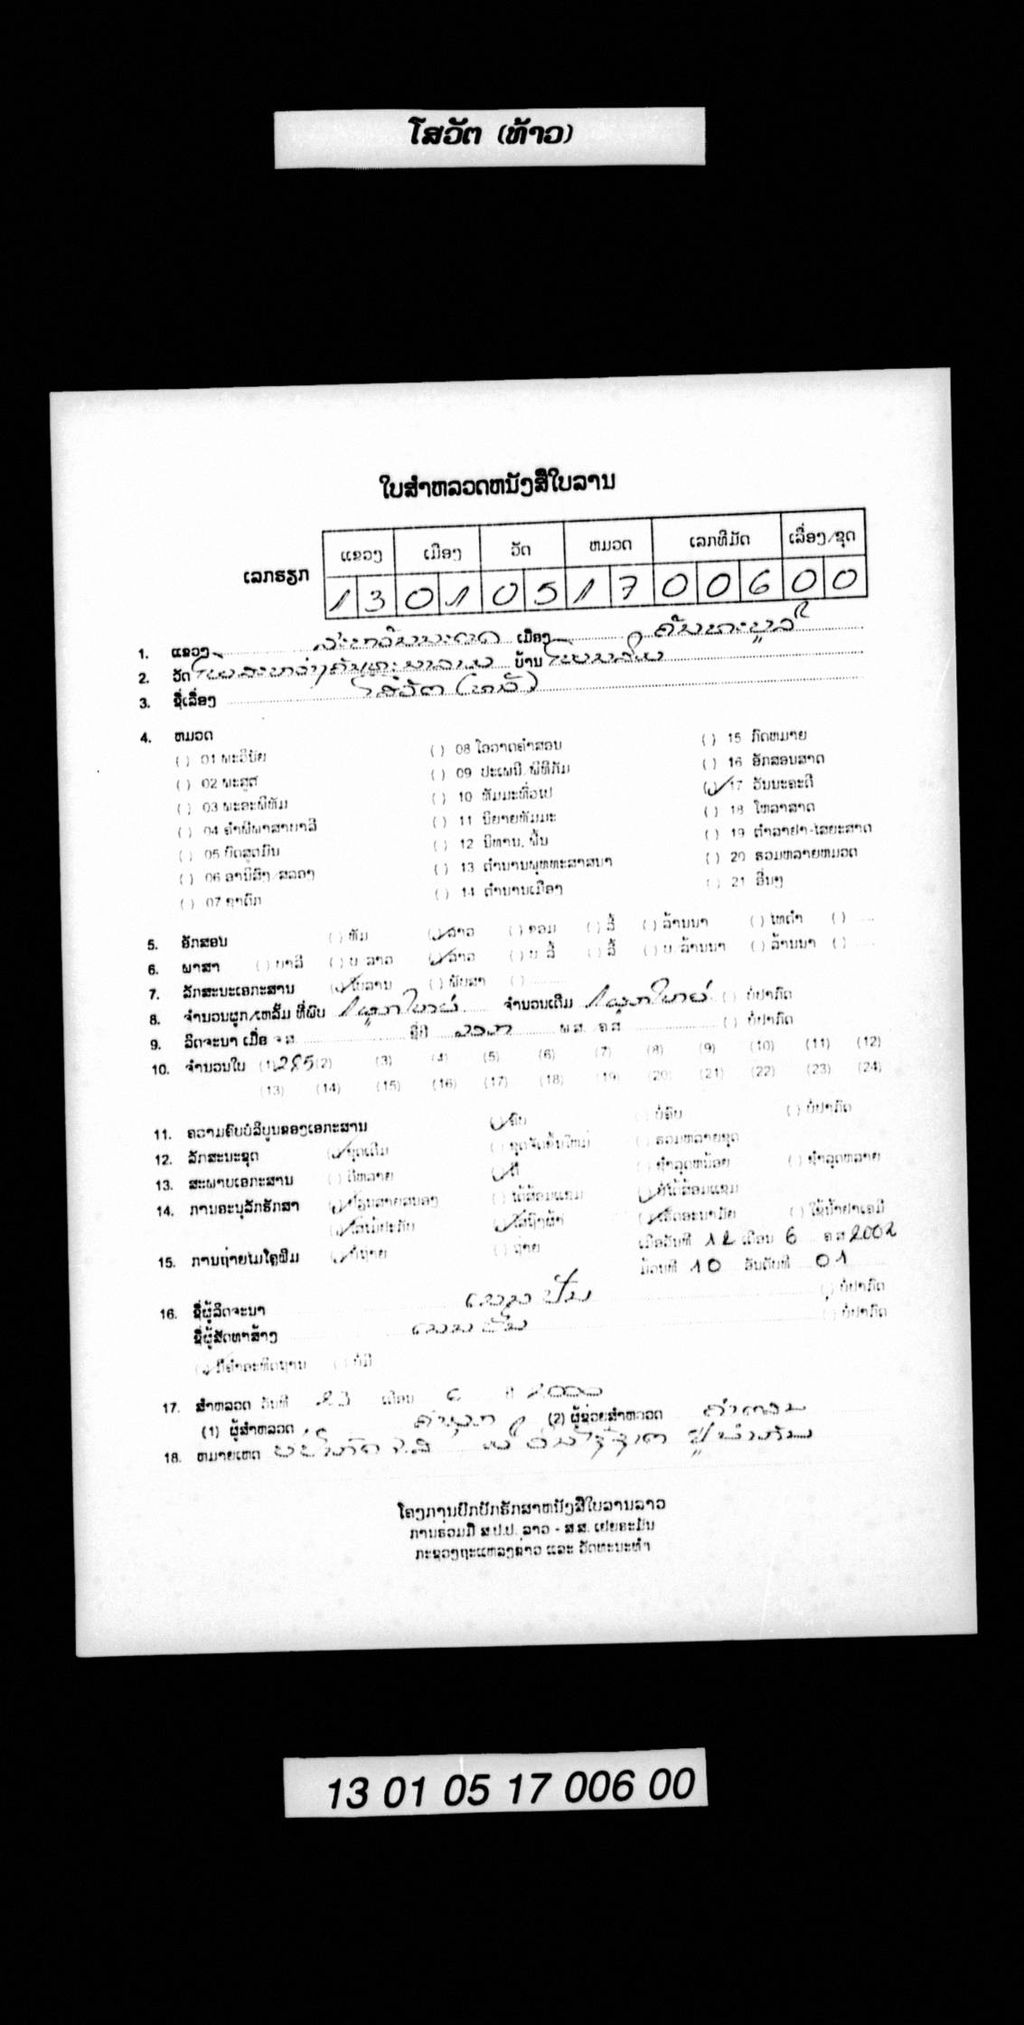 ໂສວັຕ (ທ້າວ)
ໃບສຳຫລວດຫນັງສືໃບລານ
ເລກຮຽກ ແຂວງ ເມືອງ ວັດ ຫມວດ ເລກທີມັດ ເລື່ອງ/ຊຸດ
1 3 0 1 0 5 1 7 0 0 6 0 0
1. ແຂວງ ສະຫວັນນະເຂດ ເມືອງ
2. ວັດ ບ້ານ
3. ຊື່ເລື່ອງ
4. ຫມວດ
( ) 01 ພະວິນັຍ ( ) 08 ໂອວາດຄຳສອນ ( ) 15 ກົດຫມາຍ
( ) 02 ພະສູດ ( ) 09 ປະເພນີ, ພິທີກັມ ( ) 16 ອັກສອນສາດ
( ) 03 ພະອະພິທັມ ( ) 10 ທັມມະທົ່ວໄປ (✓) 17 ວັນນະຄະດີ
( ) 04 ຄຳພີພາສາບາລີ ( ) 11 ນິຍາຍທັມມະ ( ) 18 ໂຫລາສາດ
( ) 05 ບົດສູດມົນ ( ) 12 ນິທານ, ພື້ນ ( ) 19 ຕຳລາຢາ-ໄສຍະສາດ
( ) 06 ອານິສົງ/ສລອງ ( ) 13 ຕຳນານພຸທທະສາສນາ ( ) 20 ຮວມຫລາຍຫມວດ
( ) 07 ຊາດົກ ( ) 14 ຕຳນານເມືອງ ( ) 21 ອື່ນໆ
5. ອັກສອນ ( ) ທັມ (✓) ລາວ ( ) ຂອມ ( ) ລື້ ( ) ລ້ານນາ ( ) ໄທດຳ ( )
6. ພາສາ ( ) ບາລີ ( ) ບ. ລາວ (✓) ລາວ ( ) ບ. ລື້ ( ) ລື້ ( ) ບ. ລ້ານນາ ( ) ລ້ານນາ ( )
7. ລັກສະນະເອກະສານ (✓) ໃບລານ ( ) ພັບສາ ( )
8. ຈຳນວນຜູກ/ເຫລັ້ມ ທີ່ພົບ 1 ຜູກໃຫຍ່ ຈຳນວນເຕັມ 1 ຜູກໃຫຍ່ ( ) ບໍ່ປາກົດ
9. ລິດຈະນາ ເມື່ອ ຈ.ສ. ຊື່ປີ ພ.ສ. ຄ.ສ. ( ) ບໍ່ປາກົດ
10. ຈຳນວນໃບ (1) 285 (2) (3) (4) (5) (6) (7) (8) (9) (10) (11) (12)
(13) (14) (15) (16) (17) (18) (19) (20) (21) (22) (23) (24)
11. ຄວາມຄົບບໍລິບູນຂອງເອກະສານ (✓) ຄົບ ( ) ບໍ່ຄົບ ( ) ບໍ່ປາກົດ
12. ລັກສະນະຊຸດ (✓) ຊຸດເດີມ ( ) ຊຸດຈັດຂຶ້ນໃຫມ່ ( ) ຮວມຫລາຍຊຸດ
13. ສະພາບເອກະສານ ( ) ດີຫລາຍ (✓) ດີ ( ) ຊຳລຸດຫນ້ອຍ ( ) ຊຳລຸດຫລາຍ
14. ການອະນຸລັກຮັກສາ (✓) ປ່ຽນສາຍສນອງ ( ) ໄດ້ສ້ອມແຊມ (✓) ບໍ່ໄດ້ສ້ອມແຊມ
(✓) ໃສ່ໄມ້ປະກັບ (✓) ໃສ່ຖົງຜ້າ (✓) ເຮັດອະນາມັຍ ( ) ໃຊ້ນ້ຳຢາເຄມີ
15. ການຖ່າຍໄມໂຄຼຟິມ (✓) ບໍ່ຖ່າຍ ( ) ຖ່າຍ ເມື່ອວັນທີ 12 ເດືອນ 6 ຄ.ສ 2002
ມ້ວນທີ 10 ອັນດັບທີ 01
16. ຊື່ຜູ້ລິດຈະນາ ( ) ບໍ່ປາກົດ
ຊື່ຜູ້ສັດທາສ້າງ ( ) ບໍ່ປາກົດ
(✓) ມີຄຳອະທິດຖານ ( ) ບໍ່ມີ
17. ສຳຫລວດ ວັນທີ ເດືອນ
(1) ຜູ້ສຳຫລວດ (2) ຜູ້ຊ່ວຍສຳຫລວດ
18. ຫມາຍເຫດ
ໂຄງການປົກປັກຮັກສາຫນັງສືໃບລານລາວ
ການຮວມມື ສ.ປ.ປ. ລາວ - ສ.ສ. ເຢຍຣະມັນ
ກະຊວງຖະແຫລງຂ່າວ ແລະ ວັດທະນະທຳ
13 01 05 17 006 00